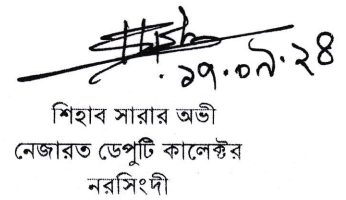 ১৭.০৯.২৪
শিহাব সারার অভী
নেজারত ডেপুটি কালেক্টর
নরসিংদী